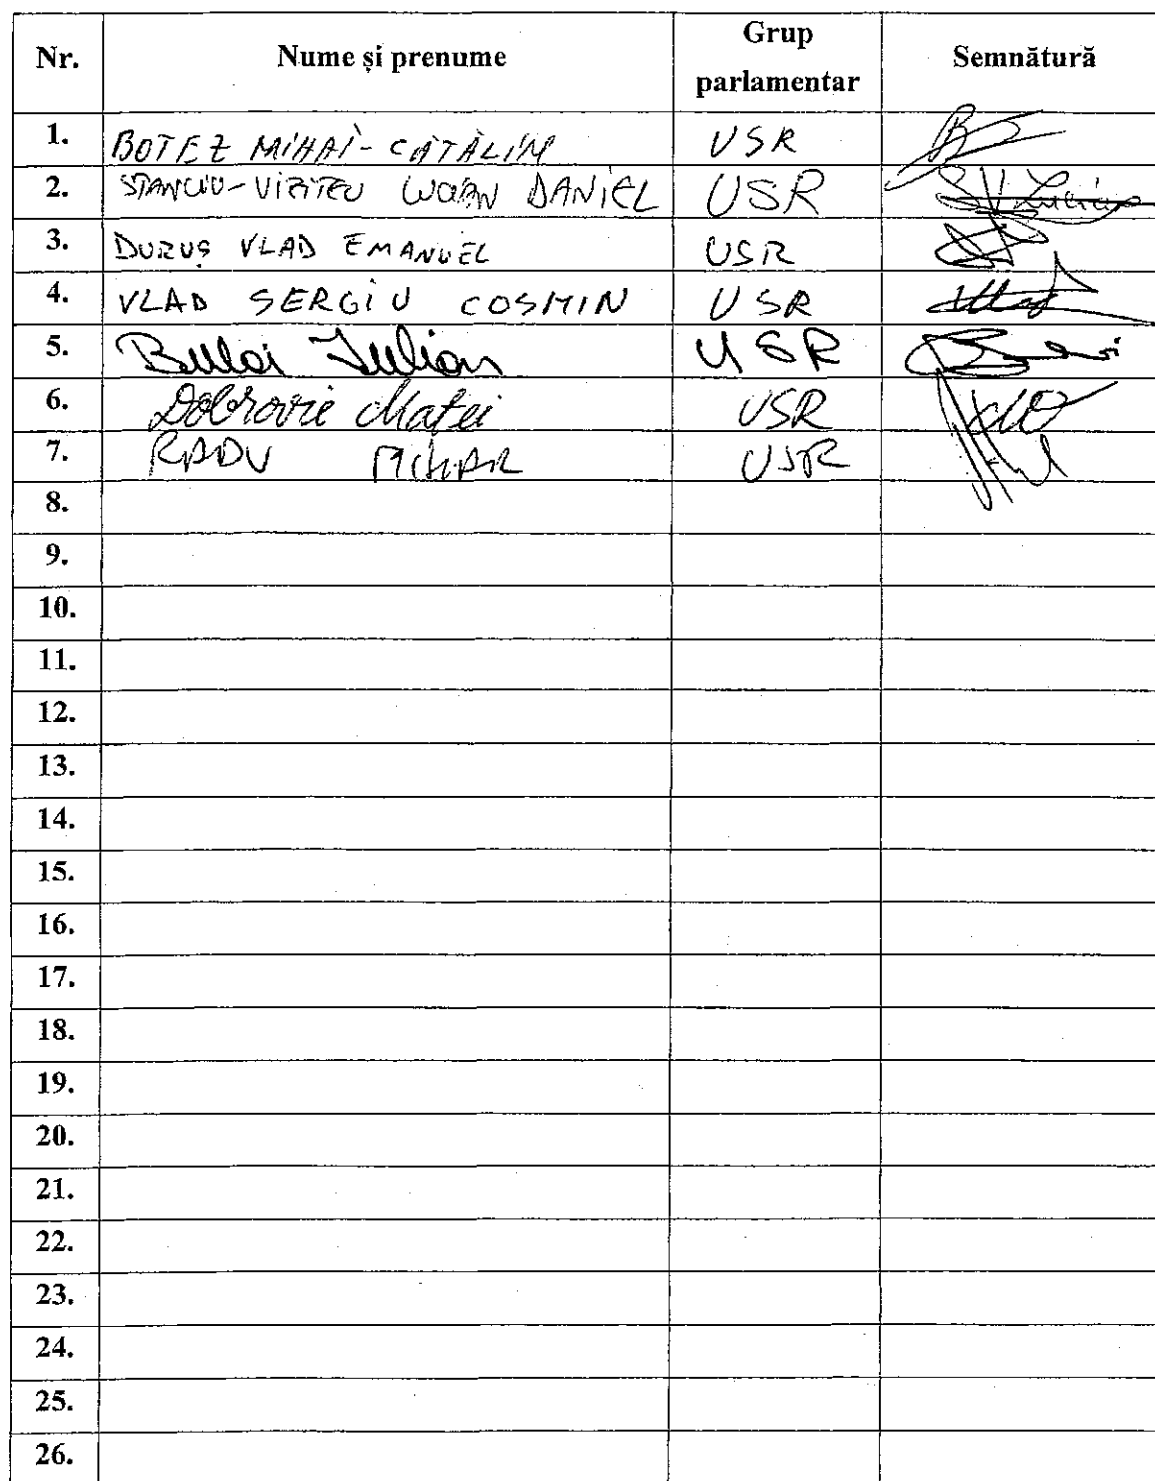 Nr. Nume și prenume Grup parlamentar Semnătură
1. BOTEZ MIHAI-CĂTĂLIN USR
2. STANCIU-VIZITEU DANIEL USR
3. DURUȘ VLAD EMANUEL USR
4. VLAD SERGIU COSMIN USR
5. Bulai Iulian USR
6. Dobrovie Matei USR
7. RADU USR
8.
9.
10.
11.
12.
13.
14.
15.
16.
17.
18.
19.
20.
21.
22.
23.
24.
25.
26.